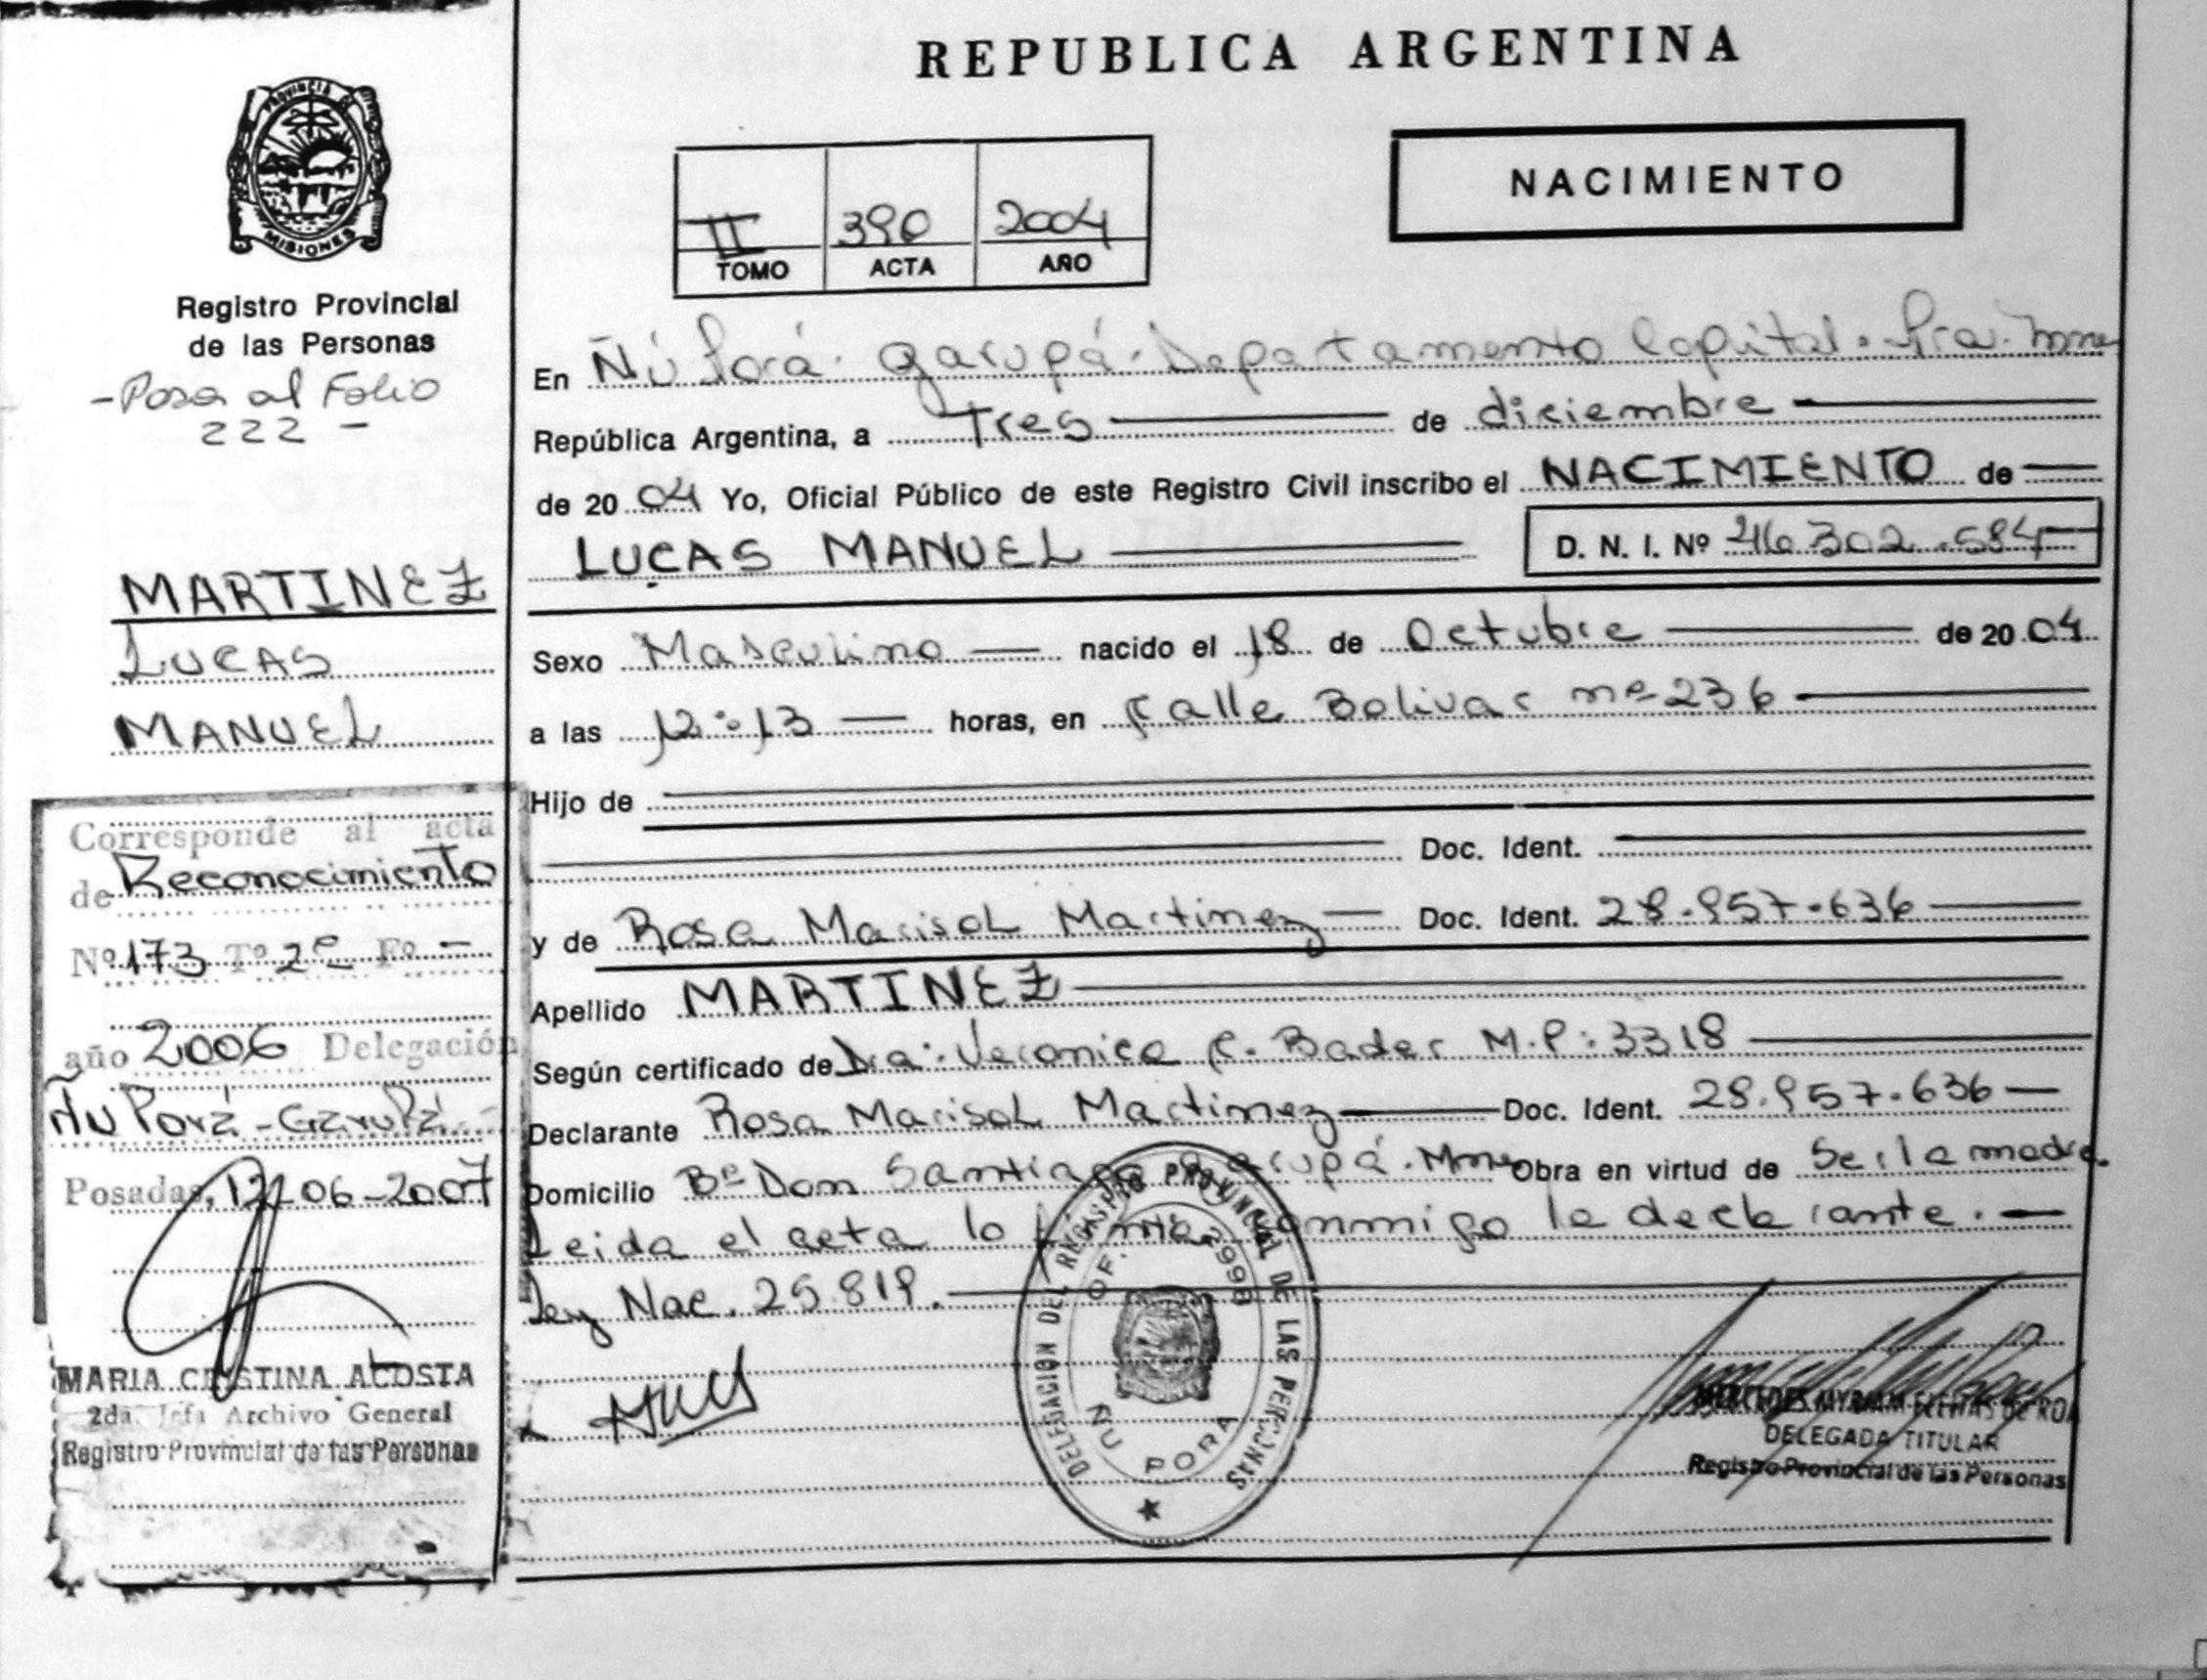 REPUBLICA ARGENTINA
NACIMIENTO
II 390 2004
TOMO ACTA AÑO
PROVINCIA DE
MISIONES
Registro Provincial
de las Personas
-Pasa al Folio
222 -
MARTINEZ
LUCAS
MANUEL
Corresponde al acta
de Reconocimiento
Nº 173 Tº 2º Fº -
año 2006 Delegación
Ñu Porá - Garupá
Posadas, 12-06-2007
MARIA CRISTINA ACOSTA
2da. Jefa Archivo General
Registro Provincial de las Personas
En Ñú Porá. Garupá. Departamento Capital. Pcia. Mnes
República Argentina, a Tres de diciembre
de 20 04 Yo, Oficial Público de este Registro Civil inscribo el NACIMIENTO de
LUCAS MANUEL D. N. I. Nº 46.302.584
Sexo Masculino nacido el 18 de Octubre de 20 04
a las 12:13 horas, en Calle Bolivar nº 236
Hijo de
Doc. Ident.
y de Rosa Marisol Martinez Doc. Ident. 28.957.636
Apellido MARTINEZ
Según certificado de Dra. Veronica C. Bader M.P: 3318
Declarante Rosa Marisol Martinez Doc. Ident. 28.957.636
Domicilio Bº Don Santiago Garupá. Mnes Obra en virtud de Ser la madre.
Leida el acta la firma conmigo la declarante.
Ley Nac. 25.819.
DELEGACION DEL REGISTRO PROVINCIAL DE LAS PERSONAS
OF. 2998
ÑU PORA
MERCEDES MYRIAM FLEITAS DE ROA
DELEGADA TITULAR
Registro Provincial de las Personas